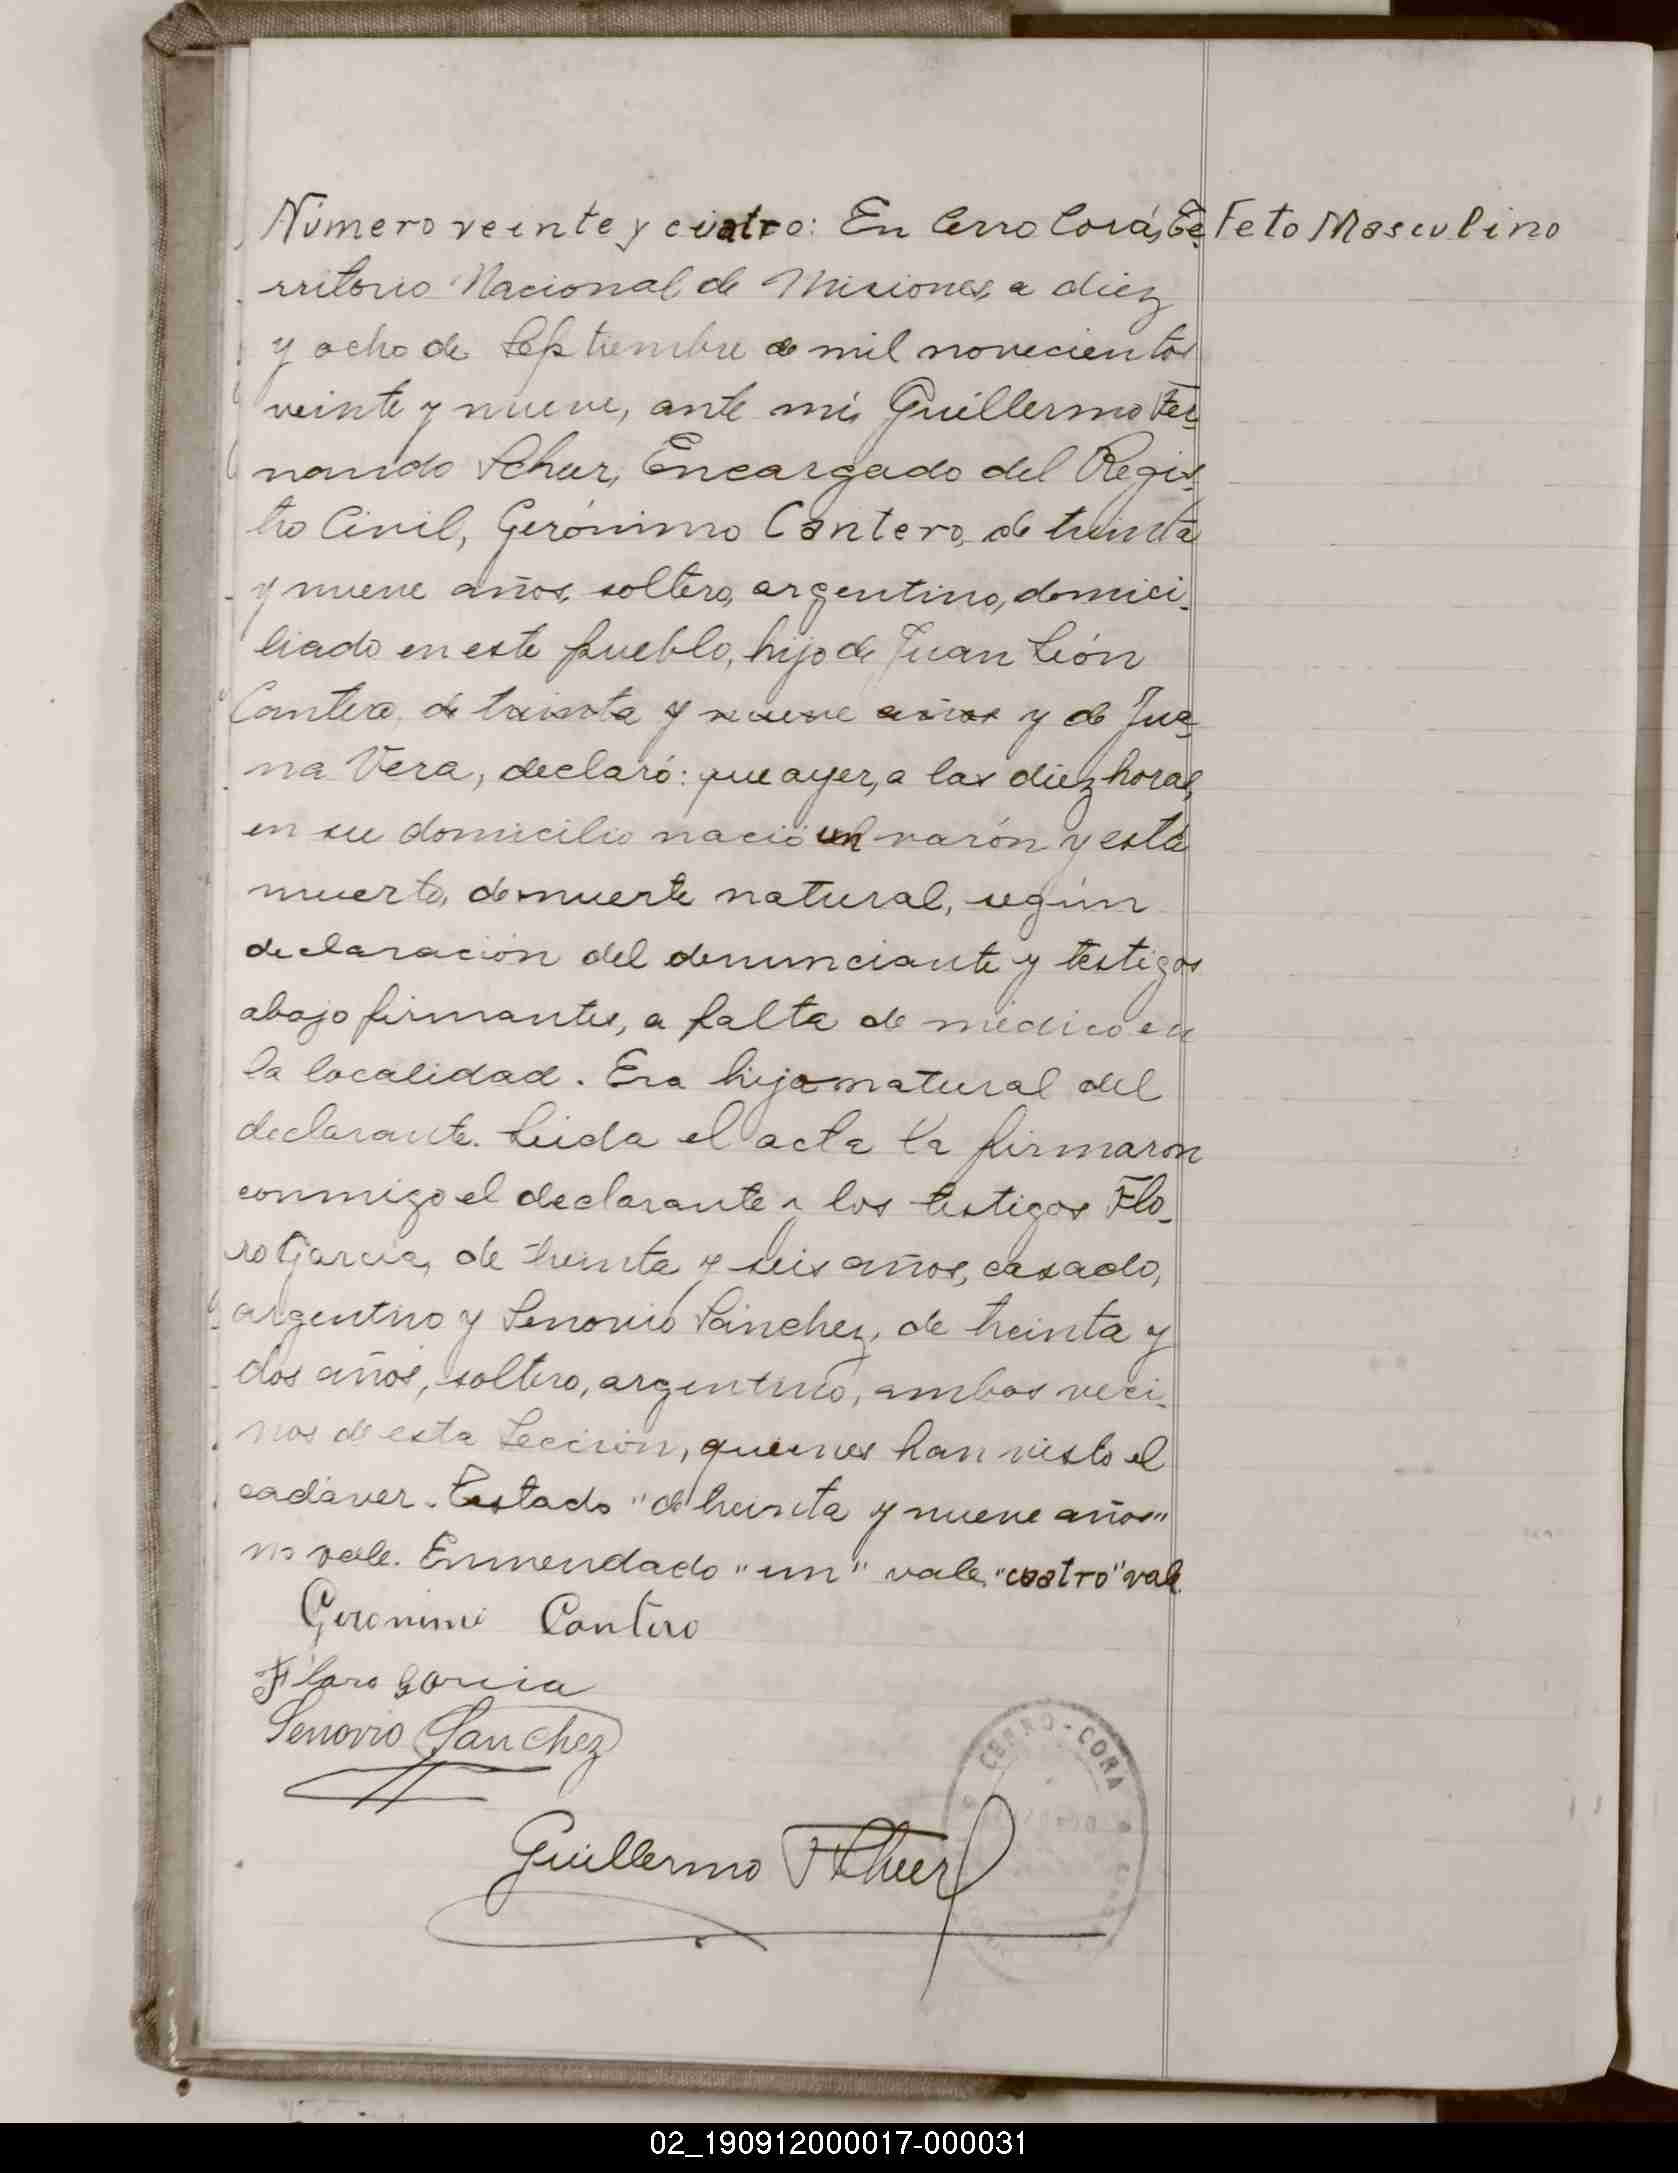 Número veinte y cuatro: En Cerro Corá, Te-
Feto Masculino
rritorio Nacional de Misiones, a diez
y ocho de Septiembre de mil novecientos
veinte y nueve, ante mí, Guillermo Fer-
nando Scheer, Encargado del Regis-
tro Civil, Gerónimo Cantero, de treinta
y nueve años, soltero, argentino, domici-
liado en este pueblo, hijo de Juan León
Cantero, de treinta y nueve años y de Jua-
na Vera, declaró: que ayer, a las diez horas,
en su domicilio nació un varón y está
muerto, de muerte natural, según
declaración del denunciante y testigos
abajo firmantes, a falta de médico en
la localidad. Era hijo natural del
declarante. Leida el acta la firmaron
conmigo el declarante y los testigos Flo-
ro Garcia, de treinta y seis años, casado,
argentino y Senovio Sánchez, de treinta y
dos años, soltero, argentino, ambos veci-
nos de esta Sección, quienes han visto el
cadáver. Testado "de treinta y nueve años"
no vale. Enmendado "un" vale, "cuatro" vale.
Geronimo Cantero
Floro Garcia
Senovio Sanchez
Guillermo F Scheer
CERRO-CORA
02_190912000017-000031